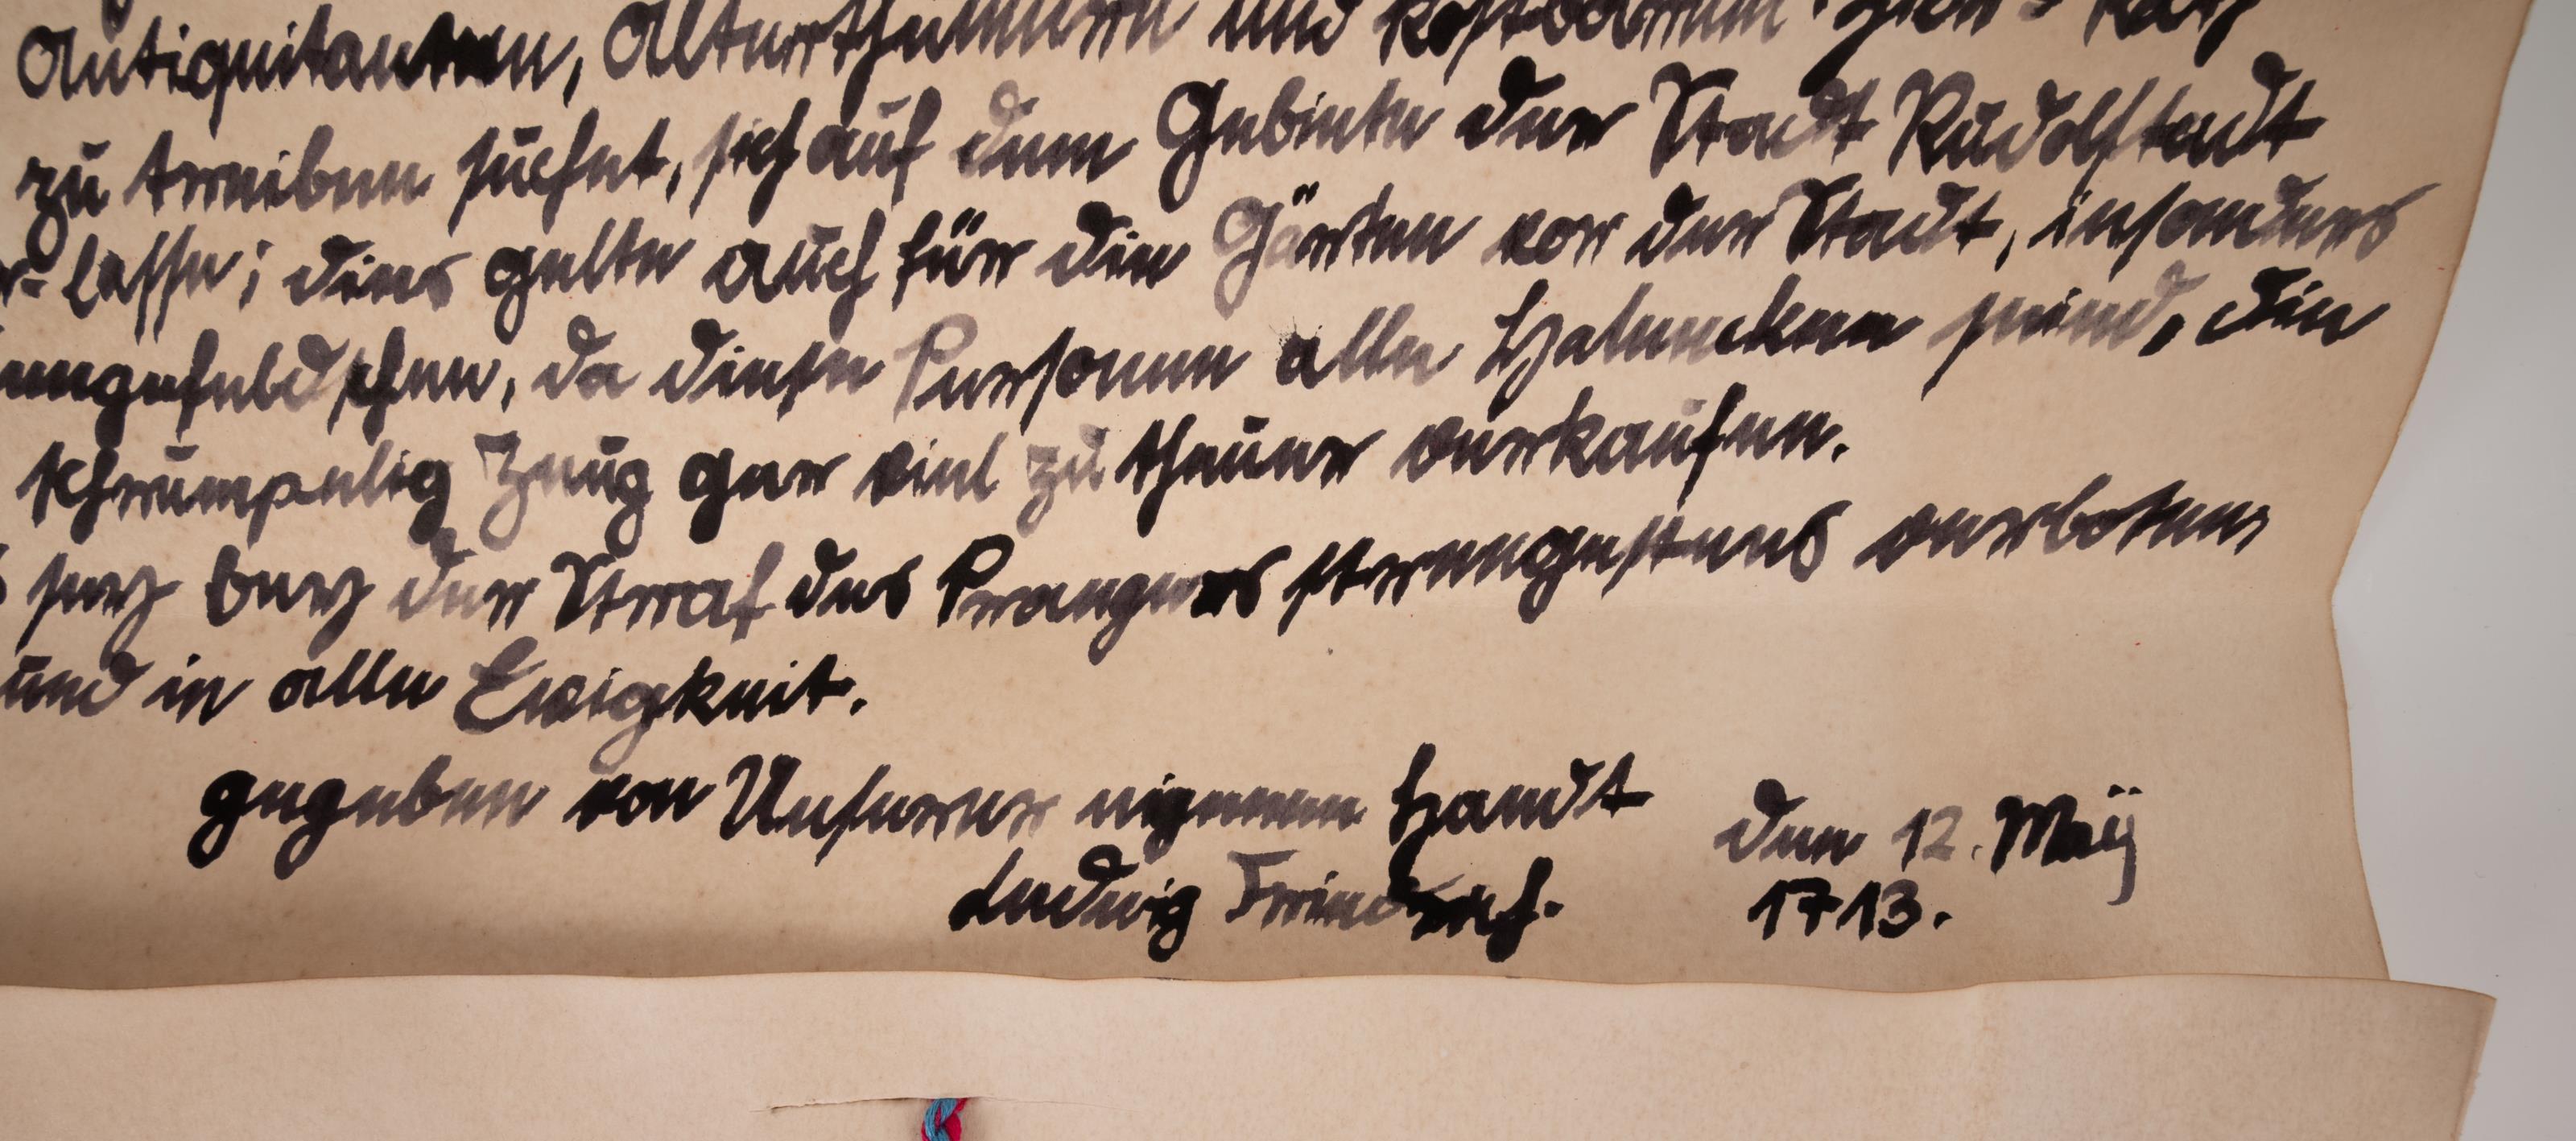 Antiquitaeten, Alterthümern und Kostbarem
zu treiben suchet, sich auf dem Gebiete der Stadt Rudolstadt
lasse; dies gelte auch für die Gärten vor der Stadt, insonders
da diese Persone alle Haluncken seind, die
Khrumpelig Zeug gar viel zu theuer verkaufen.
sey bey der Straf des Prangers strengestens verboten
und in alle Ewigkeit.
gegeben von Unserer eigenen Handt
den 12. Mäij
Ludwig Friedrich.
1713.